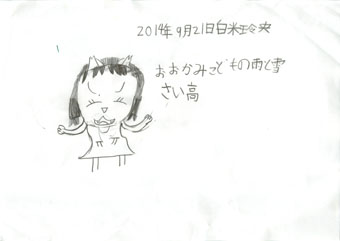 2014年9月21日白米玲央
おおかみこどもの雨と雪
さい高